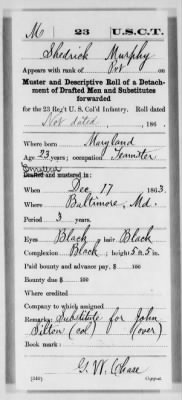 M | 23 | U.S.C.T.
Shedrick Murphy
Appears with rank of Pvt on
Muster and Descriptive Roll of a Detach-
ment of Drafted Men and Substitutes
forwarded
for the 23 Reg't U. S. Col'd Infantry. Roll dated
Not dated, 186 .
Where born Maryland
Age 23 years; occupation Teamster
Enrolled
Drafted and mustered in:
When Dec 17 1863.
Where Baltimore, Md.
Period 3 years.
Eyes Black hair Black
Complexion Black; height 5 ft. 5 in.
Paid bounty and advance pay. $ 100
Bounty due $ 100
Where credited
Company to which assigned
Remarks: Substitute for John
(col) (over)
Book mark:
G. W. Chase
(340) Copyist.